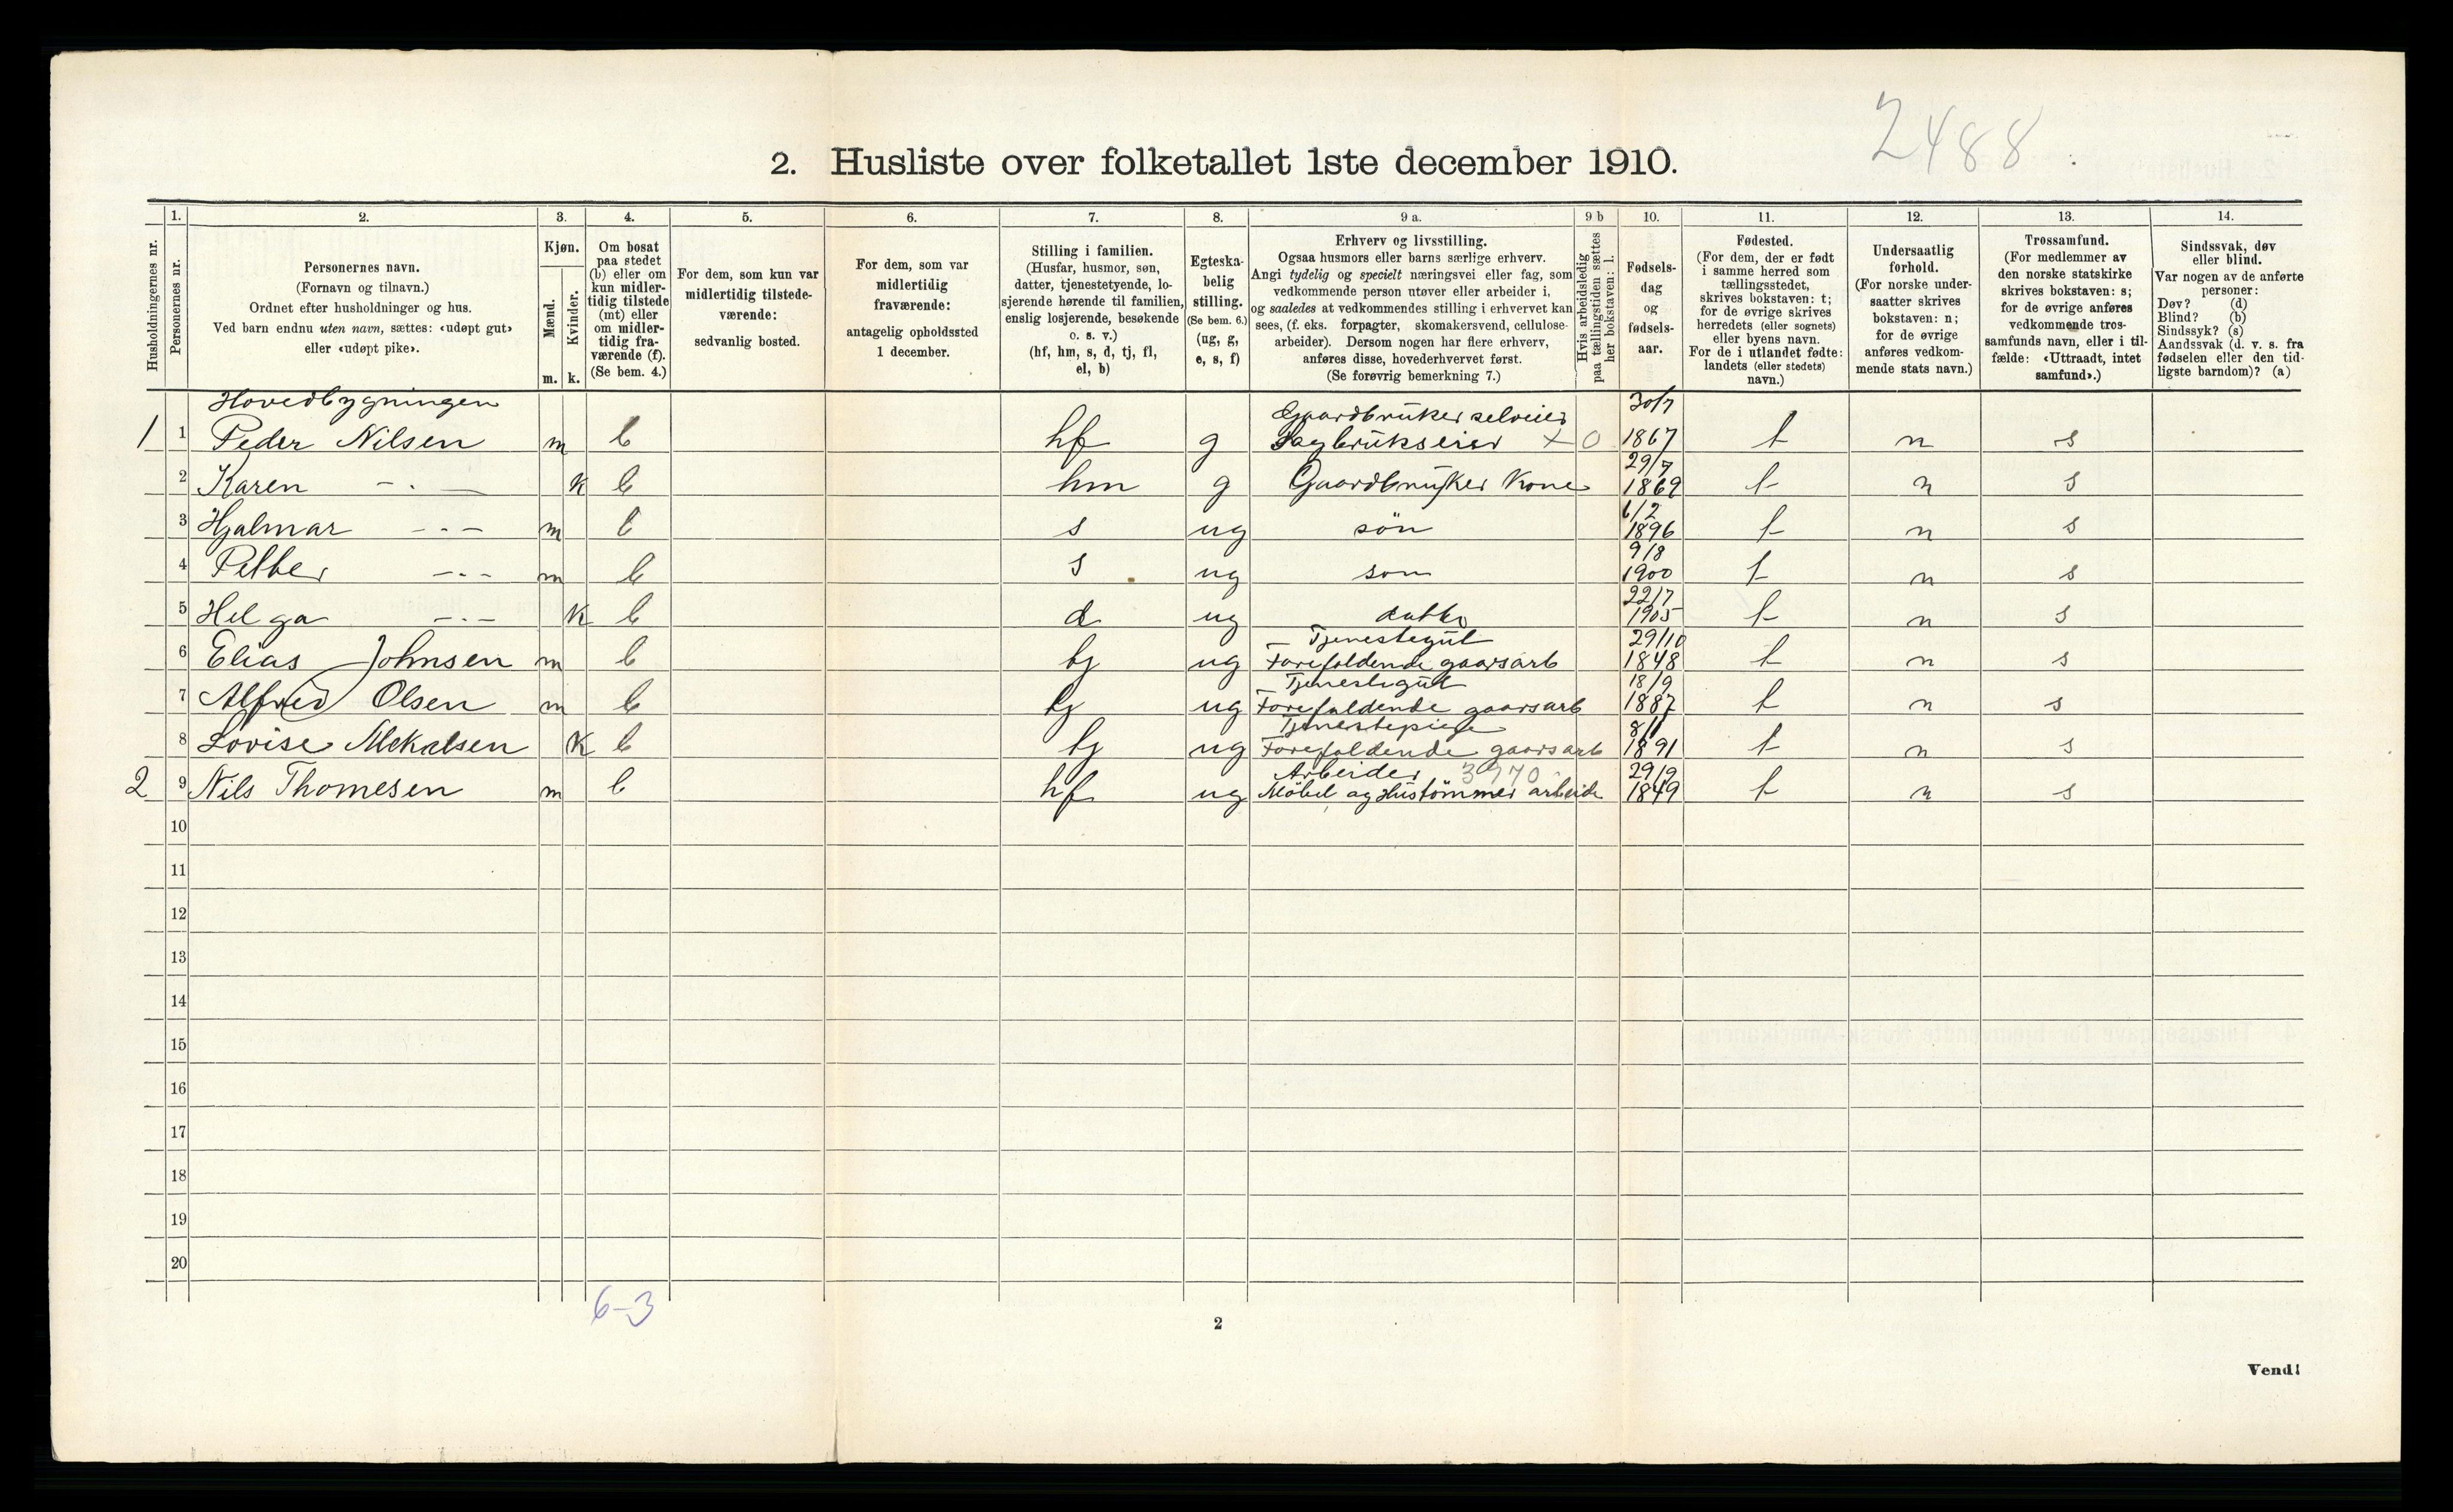 2488
2. Husliste over folketallet 1ste december 1910.
Husholdningernes nr.
1.
Personernes nr.
2.
Personernes navn.
(Fornavn og tilnavn.)
Ordnet efter husholdninger og hus.
Ved barn endnu uten navn, sættes: «udøpt gut»
eller «udøpt pike».
3.
Kjøn.
Mænd.
Kvinder.
m. k.
4.
Om bosat
paa stedet
(b) eller om
kun midler-
tidig tilstede
(mt) eller
om midler-
tidig fra-
værende (f).
(Se bem. 4.)
5.
For dem, som kun var
midlertidig tilstede-
værende:
sedvanlig bosted.
6.
For dem, som var
midlertidig
fraværende:
antagelig opholdssted
1 december.
7.
Stilling i familien.
(Husfar, husmor, søn,
datter, tjenestetyende, lo-
sjerende hørende til familien,
enslig losjerende, besøkende
o. s. v.)
(hf, hm, s, d, tj, fl,
el, b)
8.
Egteska-
belig
stilling.
(Se bem. 6.)
(ug, g,
e, s, f)
9 a.
Erhverv og livsstilling.
Ogsaa husmors eller barns særlige erhverv.
Angi tydelig og specielt næringsvei eller fag, som
vedkommende person utøver eller arbeider i,
og saaledes at vedkommendes stilling i erhvervet kan
sees, (f. eks. forpagter, skomakersvend, cellulose-
arbeider). Dersom nogen har flere erhverv,
anføres disse, hovederhvervet først.
(Se forøvrig bemerkning 7.)
9 b
Hvis arbeidsledig
paa tællingstiden sættes
her bokstaven: l.
10.
Fødsels-
dag
og
fødsels-
aar.
11.
Fødested.
(For dem, der er født
i samme herred som
tællingsstedet,
skrives bokstaven: t;
for de øvrige skrives
herredets (eller sognets)
eller byens navn.
For de i utlandet fødte:
landets (eller stedets)
navn.)
12.
Undersaatlig
forhold.
(For norske under-
saatter skrives
bokstaven: n;
for de øvrige
anføres vedkom-
mende stats navn.)
13.
Trossamfund.
(For medlemmer av
den norske statskirke
skrives bokstaven: s;
for de øvrige anføres
vedkommende tros-
samfunds navn, eller i til-
fælde: «Uttraadt, intet
samfund».)
14.
Sindssvak, døv
eller blind.
Var nogen av de anførte
personer:
Døv? (d)
Blind? (b)
Sindssyk? (s)
Aandssvak (d. v. s. fra
fødselen eller den tid-
ligste barndom)? (a)
Hovedbygningen Gaardbruker selveier 30/7
1 1 Peder Nilsen m b hf g Sagbrukseier x 0 1867 t n s
29/7
2 Karen -.- k b hm g Gaardbruker Kone 1869 t n s
6/2
3 Hjalmar -.- m b s ug sön 1896 t n s
9/8
4 Petter -.- m b s ug son 1900 t n s
22/7
5 Helga -.- k b d ug datter 1905 t n s
Tjenestegut 29/10
6 Elias Johnsen m b tj ug Forefaldende gaarsarb 1848 t n s
Tjenestegut 18/9
7 Alfred Olsen m b tj ug Forefaldende gaarsarb 1887 t n s
Tjenestepige 8/1
8 Lovise Mekalsen k b tj ug Forefaldende gaarsarb 1891 t n s
Arbeider 29/9
2 9 Nils Thomesen m b hf ug Möbel og Hustömmer arbeide 1849 t n s
10
11
12
13
14
15
16
17
18
19
20
6-3
2
Vend!